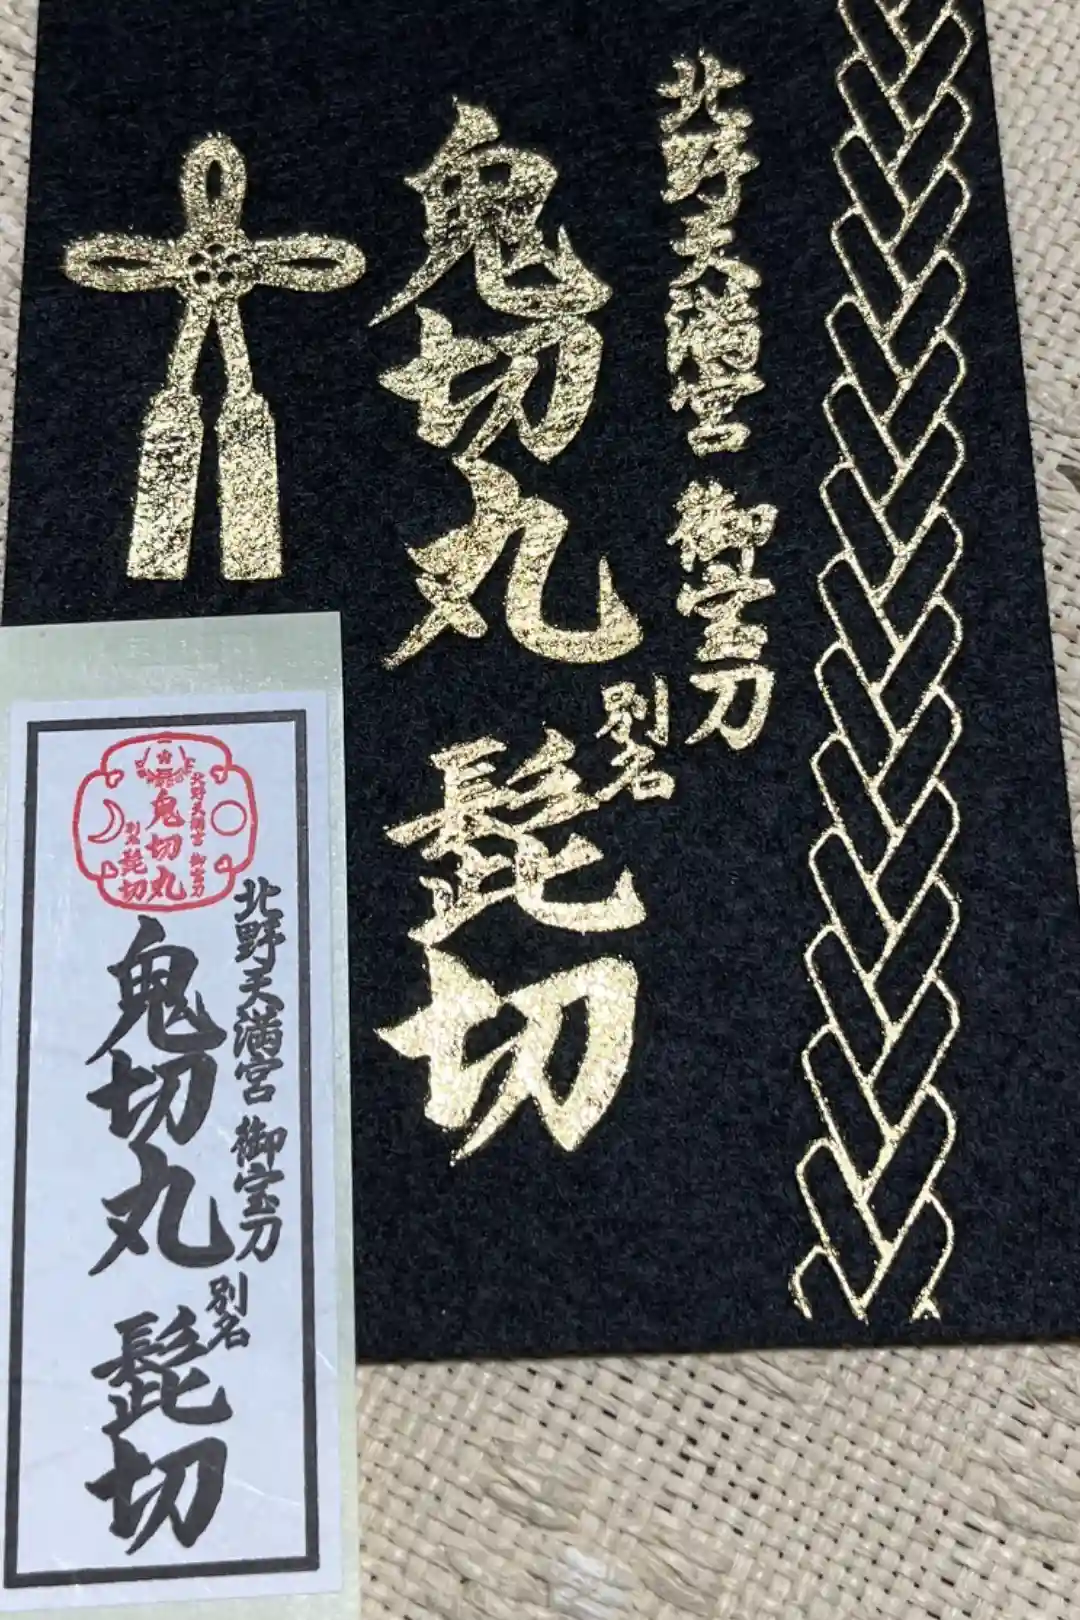 北野天満宮 御宝刀
鬼切丸
別名
髭切
北野天満宮 御宝刀
鬼切丸
別名
髭切
北野天満宮 御宝刀
鬼切丸
別名
髭切